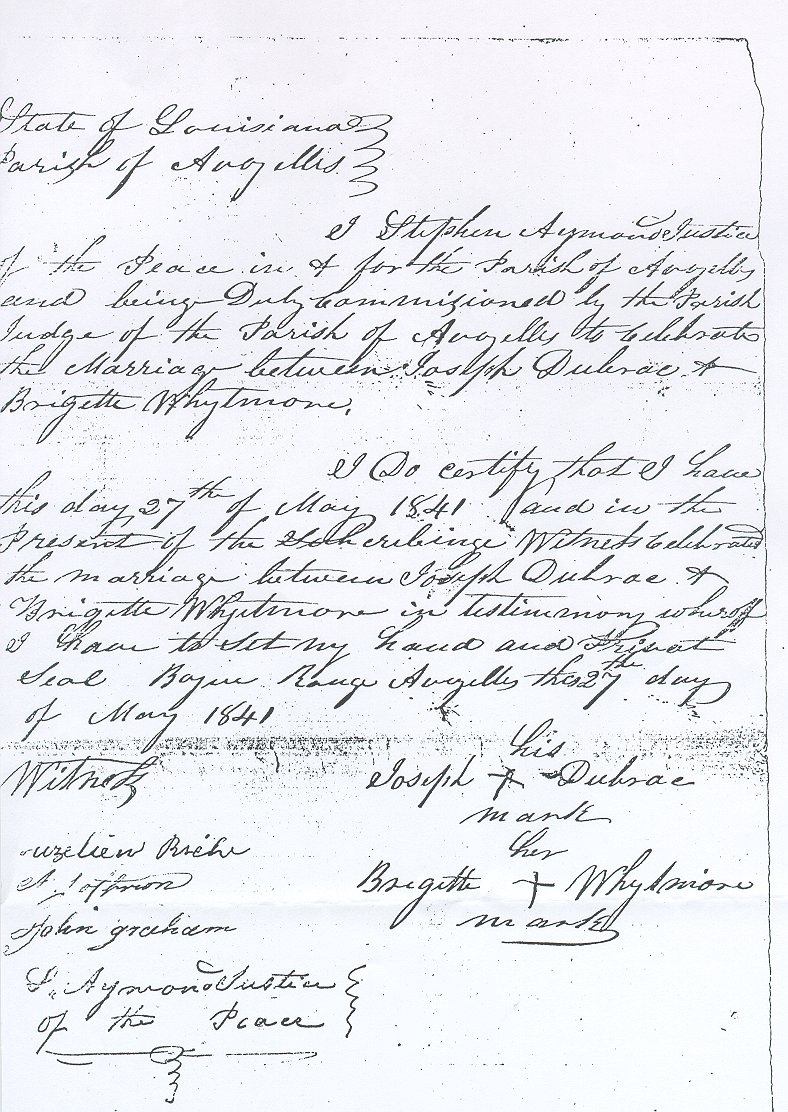 State of Louisiana
Parish of Avoyelles
I Stephen Aymond Justice
of the Peace in & for the Parish of Avoyelles
and being Duly Commissioned by the Parish
Judge of the Parish of Avoyelles to Celebrate
the Marriage between Joseph Dubrac &
Brigette Whytmore.
I Do certify that I have
this day 27th of May 1841 and in the
Present of the Witness Celebrated
the marriage between Joseph Dubrac &
Brigette Whytmore in testimmony wheroff
I have to Set my hand and Privat
Seal Rouge Avoyelles this 27th day
of May 1841
Witness
his
Joseph + Dubrac
mark
her
Brigette + Whytmore
mark
John graham
S. Aymond Justice
of the Peace